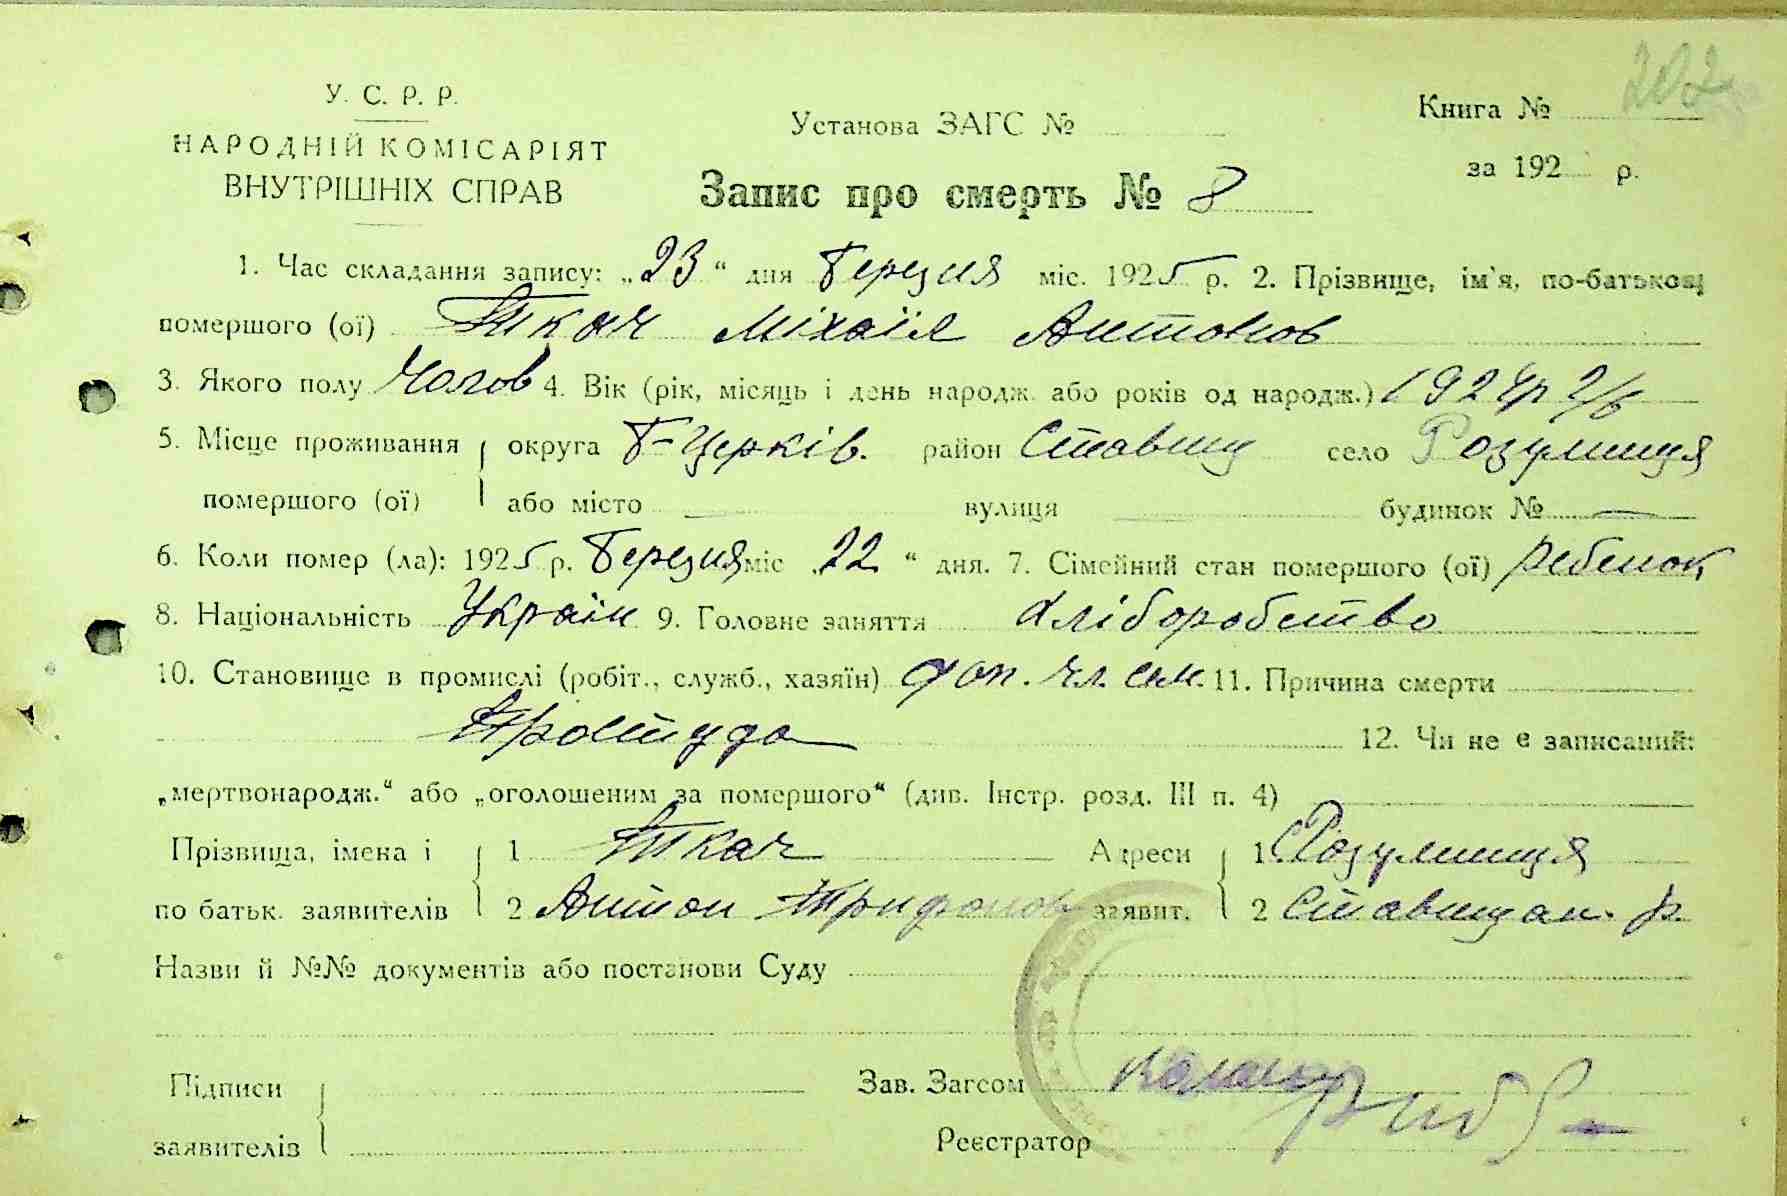 202
У. С. Р. Р.
НАРОДНІЙ КОМІСАРІЯТ
ВНУТРІШНІХ СПРАВ
Установа ЗАГС №
Книга №
за 192 р.
Запис про смерть № 8
1. Час складання запису: „23“ дня Березня міс. 1925 р. 2. Прізвище, ім'я, по-батькові
помершого (ої) Ткач Міхаїл Антонов
3. Якого полу Чолов 4. Вік (рік, місяць і день народж. або років од народж.) 1924р 2/6
5. Місце проживання округа Б-Церків. район Ставищ село Розумниця
помершого (ої) або місто — вулиця — будинок № —
6. Коли помер (ла): 1925 р. Березня міс „22“ дня. 7. Сімейний стан помершого (ої) ребенок
8. Національність Україн 9. Головне заняття Хліборобство
10. Становище в промислі (робіт., служб., хазяїн) доп. чл. сем. 11. Причина смерти
Простуда 12. Чи не є записаний:
„мертвонародж.“ або „оголошеним за помершого“ (див. Інстр. розд. III п. 4)
Прізвища, імена і 1 Ткач Адреси 1 Розумниця
по батьк. заявителів 2 Антон Трифонов заявит. 2 Ставищан. р.
Назви й №№ документів або постанови Суду
Підписи Зав. Загсом
заявителів Реєстратор